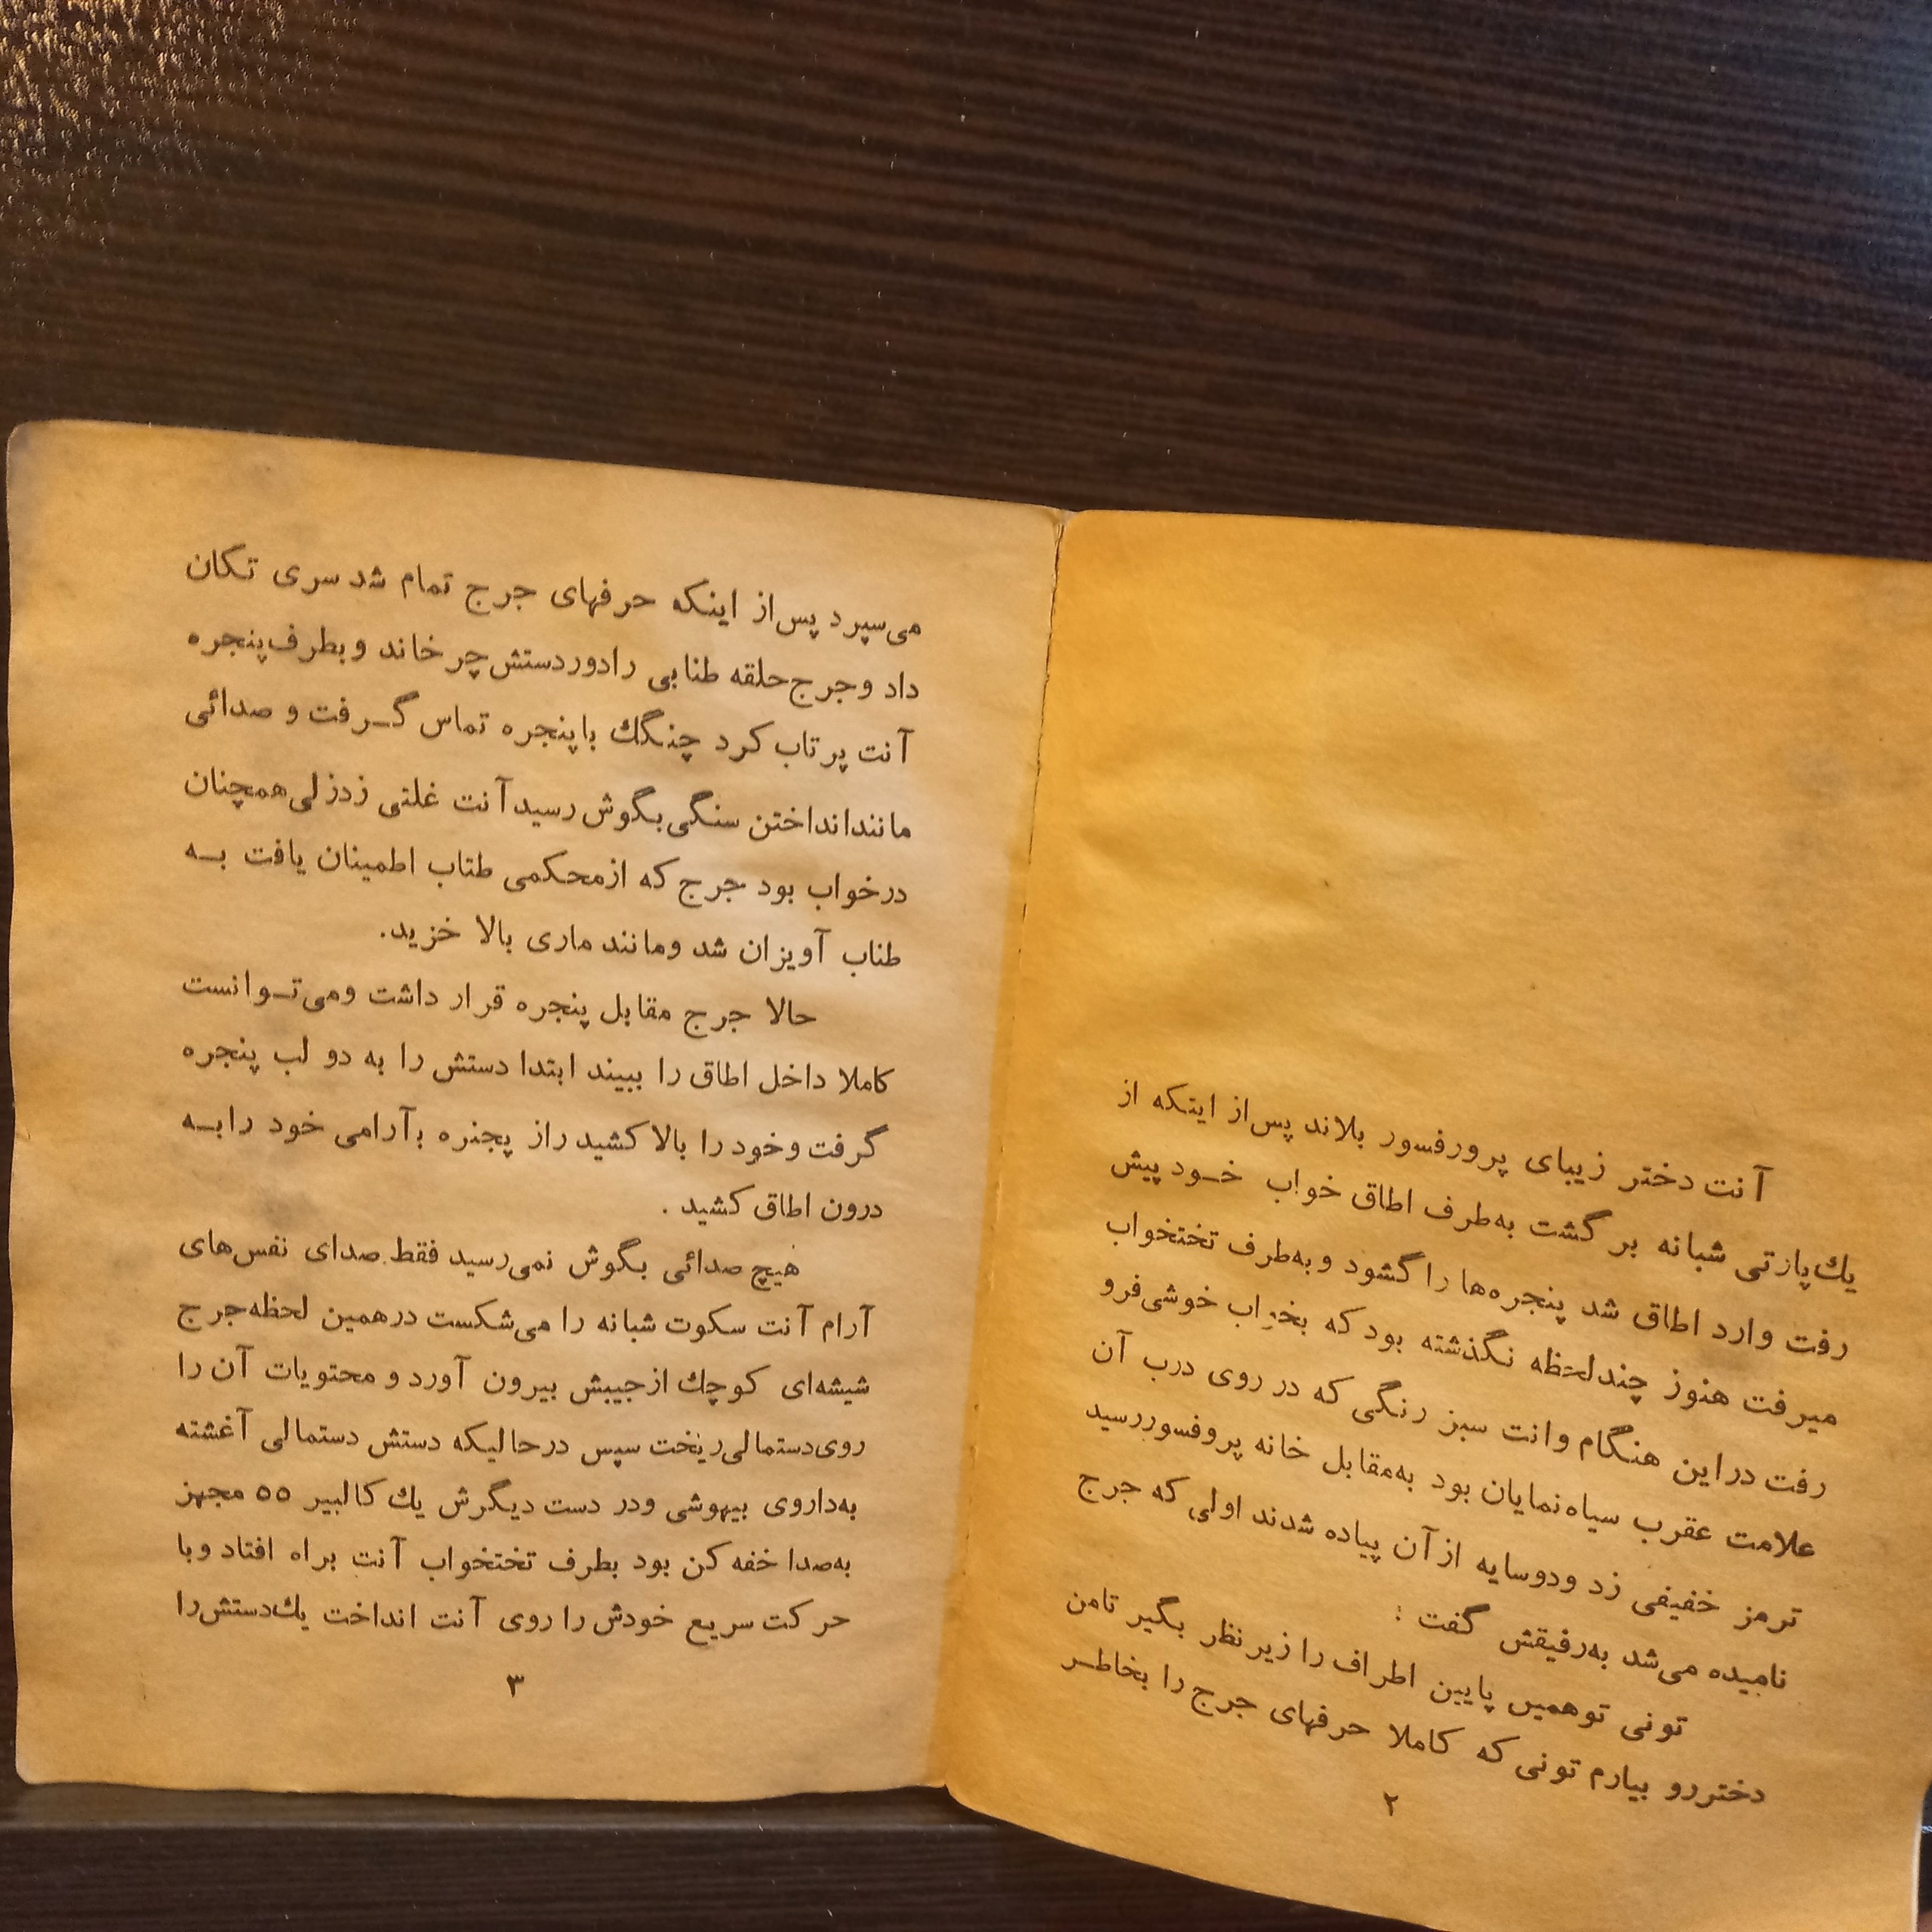 آنت دختر زیبای پرورفسور بلاند پس‌از اینکه از
یك‌پارتی شبانه برگشت به‌طرف اطاق خواب خـود پیش
رفت وارد اطاق شد پنجره‌ها را گشود و به‌طرف تختخواب
میرفت هنوز چندلحظه نگذشته بود که بخواب خوشی‌فرو
رفت دراین هنگام وانت سبز رنگی که در روی درب آن
علامت عقرب سیاه‌نمایان بود به‌مقابل خانه پروفسوررسید
ترمز خفیفی زد ودوسایه از آن پیاده شدند اولی که جرج
نامیده می‌شد به‌رفیقش گفت :
تونی توهمین پایین اطراف را زیرنظر بگیر تامن
دختررو بیارم تونی که کاملا حرفهای جرج را بخاطـر
۲
می‌سپرد پس‌از اینکه حرفهای جرج تمام شد سری تکان
داد وجرج‌حلقه طنابی رادوردستش‌چرخاند وبطرف‌پنجره
آنت پرتاب کرد چنگك باپنجره تماس گـرفت و صدائی
مانندانداختن سنگی‌بگوش رسیدآنت غلتی زدزلی‌همچنان
درخواب بود جرج که ازمحکمی طناب اطمینان یافت بـه
طناب آویزان شد ومانند ماری بالا خزید.
حالا جرج مقابل پنجره قرار داشت ومی‌تـوانست
کاملا داخل اطاق را ببیند ابتدا دستش را به دو لب پنجره
گرفت وخود را بالا کشید راز پجنره بآرامی خود رابـه
درون اطاق کشید .
هیچ صدائی بگوش نمی‌رسید فقط صدای نفس‌های
آرام آنت سکوت شبانه را می‌شکست درهمین لحظه‌جرج
شیشه‌ای کوچك ازجیبش بیرون آورد و محتویات آن را
روی‌دستمالی‌ریخت سپس درحالیکه دستش دستمالی آغشته
به‌داروی بیهوشی ودر دست دیگرش یك کالیبر ۵۵ مجهز
به‌صدا خفه کن بود بطرف تختخواب آنت براه افتاد وبا
حرکت سریع خودش را روی آنت انداخت یك‌دستش‌را
۳